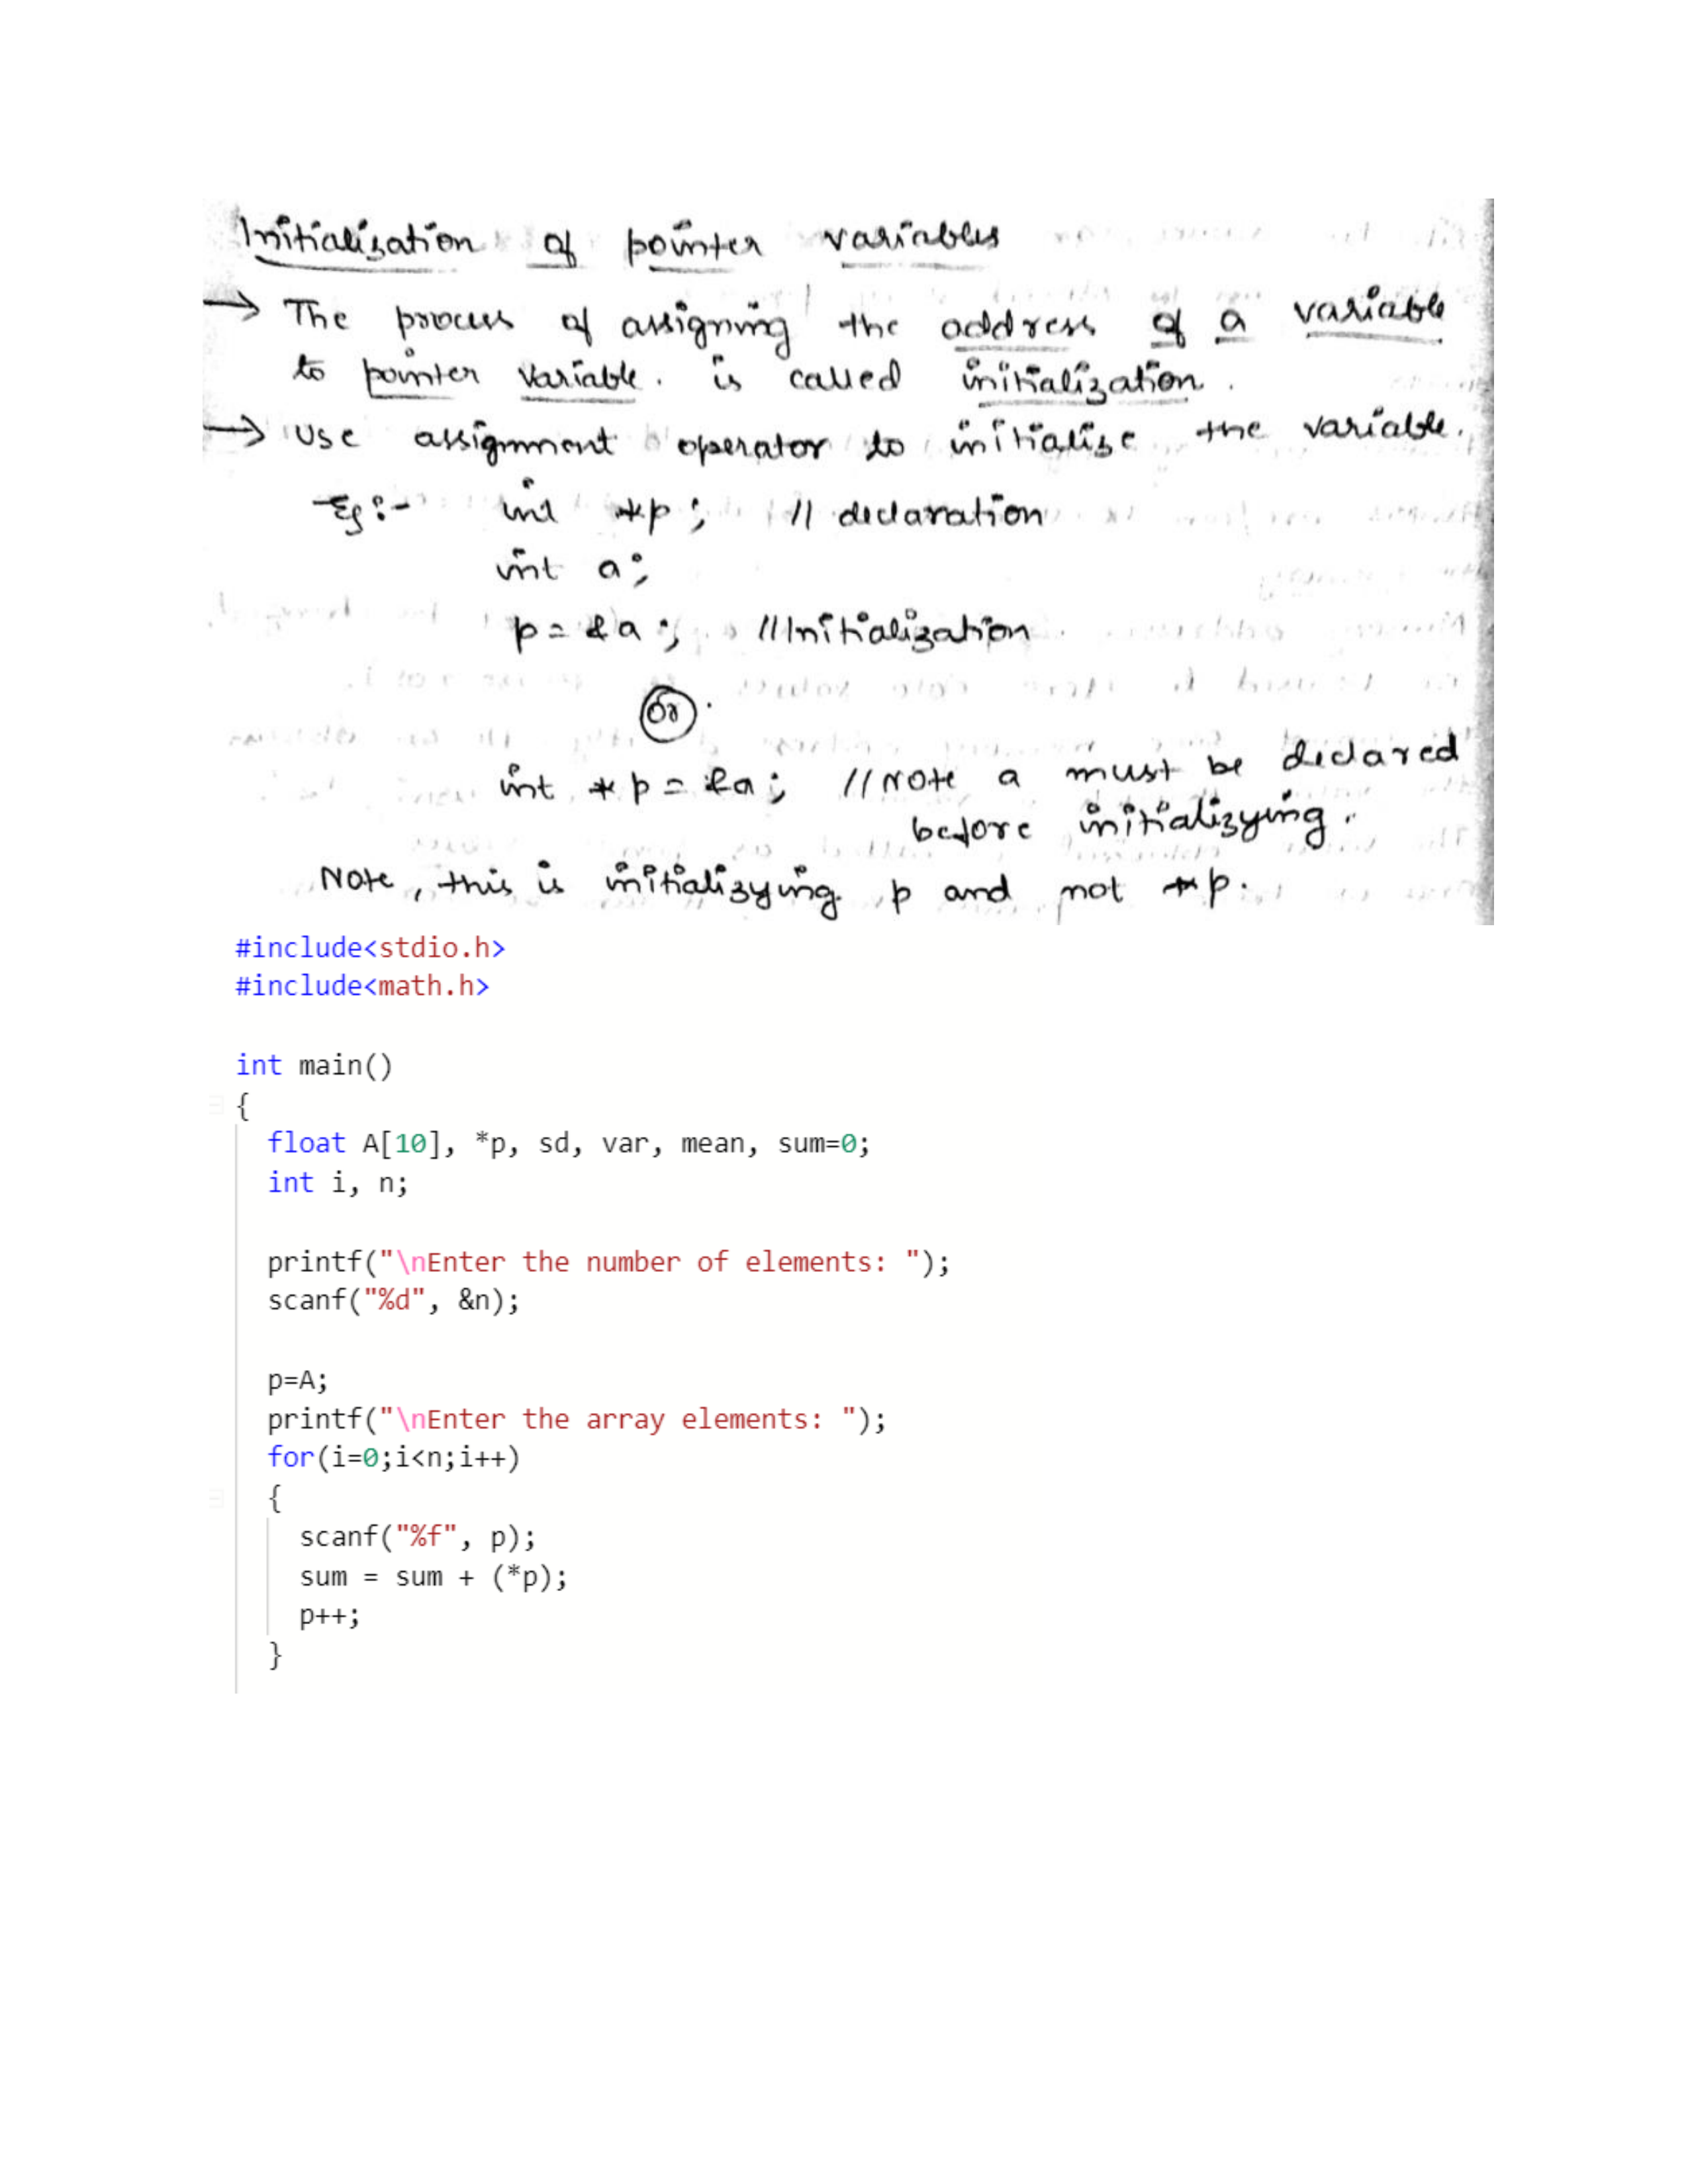 Initialization of pointer variables
→ The process of assigning the address of a variable
to pointer variable. is called initialization.
→ Use assignment operator to initialize the variable.
Eg:- int *p; // declaration
int a;
p = &a; //Initialization
Or
int *p = &a; //Note a must be declared
before initializying.
Note, this is initializying p and not *p.
#include<stdio.h>
#include<math.h>
int main()
{
float A[10], *p, sd, var, mean, sum=0;
int i, n;
printf("\nEnter the number of elements: ");
scanf("%d", &n);
p=A;
printf("\nEnter the array elements: ");
for(i=0;i<n;i++)
{
scanf("%f", p);
sum = sum + (*p);
p++;
}